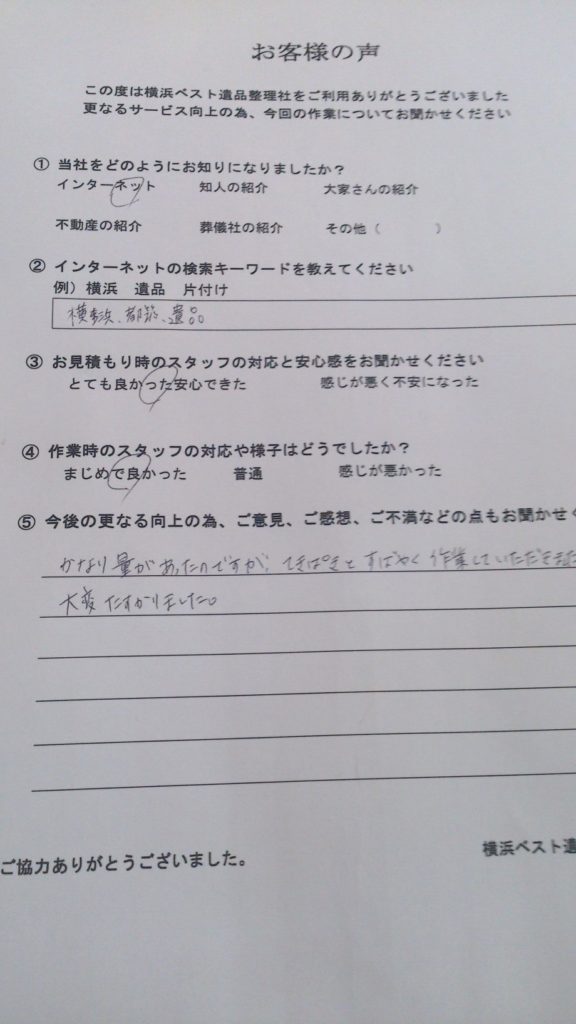 お客様の声
この度は横浜ベスト遺品整理社をご利用ありがとうございました
更なるサービス向上の為、今回の作業についてお聞かせください
① 当社をどのようにお知りになりましたか？
インターネット 知人の紹介 大家さんの紹介
不動産の紹介 葬儀社の紹介 その他（ ）
② インターネットの検索キーワードを教えてください
例）横浜 遺品 片付け
横浜、都筑、遺品
③ お見積もり時のスタッフの対応と安心感をお聞かせください
とても良かった安心できた 感じが悪く不安になった
④ 作業時のスタッフの対応や様子はどうでしたか？
まじめで良かった 普通 感じが悪かった
⑤ 今後の更なる向上の為、ご意見、ご感想、ご不満などの点もお聞かせく
かなり量があったのですが、てきぱきとすばやく作業していただきまた
大変たすかりました。
ご協力ありがとうございました。
横浜ベスト遺